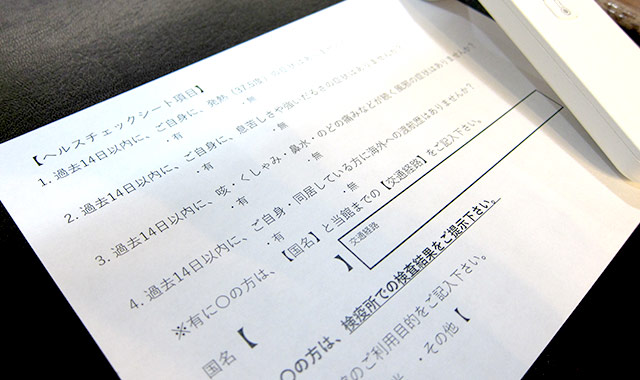 【ヘルスチェックシート項目】
1. 過去14日以内に、ご自身に、発熱（37.5度）の症状はありませんか？
・有 ・無
2. 過去14日以内に、ご自身に、息苦しさや強いだるさの症状はありませんか？
・有 ・無
3. 過去14日以内に、咳・くしゃみ・鼻水・のどの痛みなどが続く風邪の症状はありませんか？
・有 ・無
4. 過去14日以内に、ご自身・同居している方に海外への渡航歴はありますか？
・有 ・無
※有に〇の方は、【国名】と当館までの【交通経路】をご記入下さい。
国名【 】
交通経路
〇の方は、検疫所での検査結果をご提示下さい。
のご利用目的をご記入下さい。
・その他【